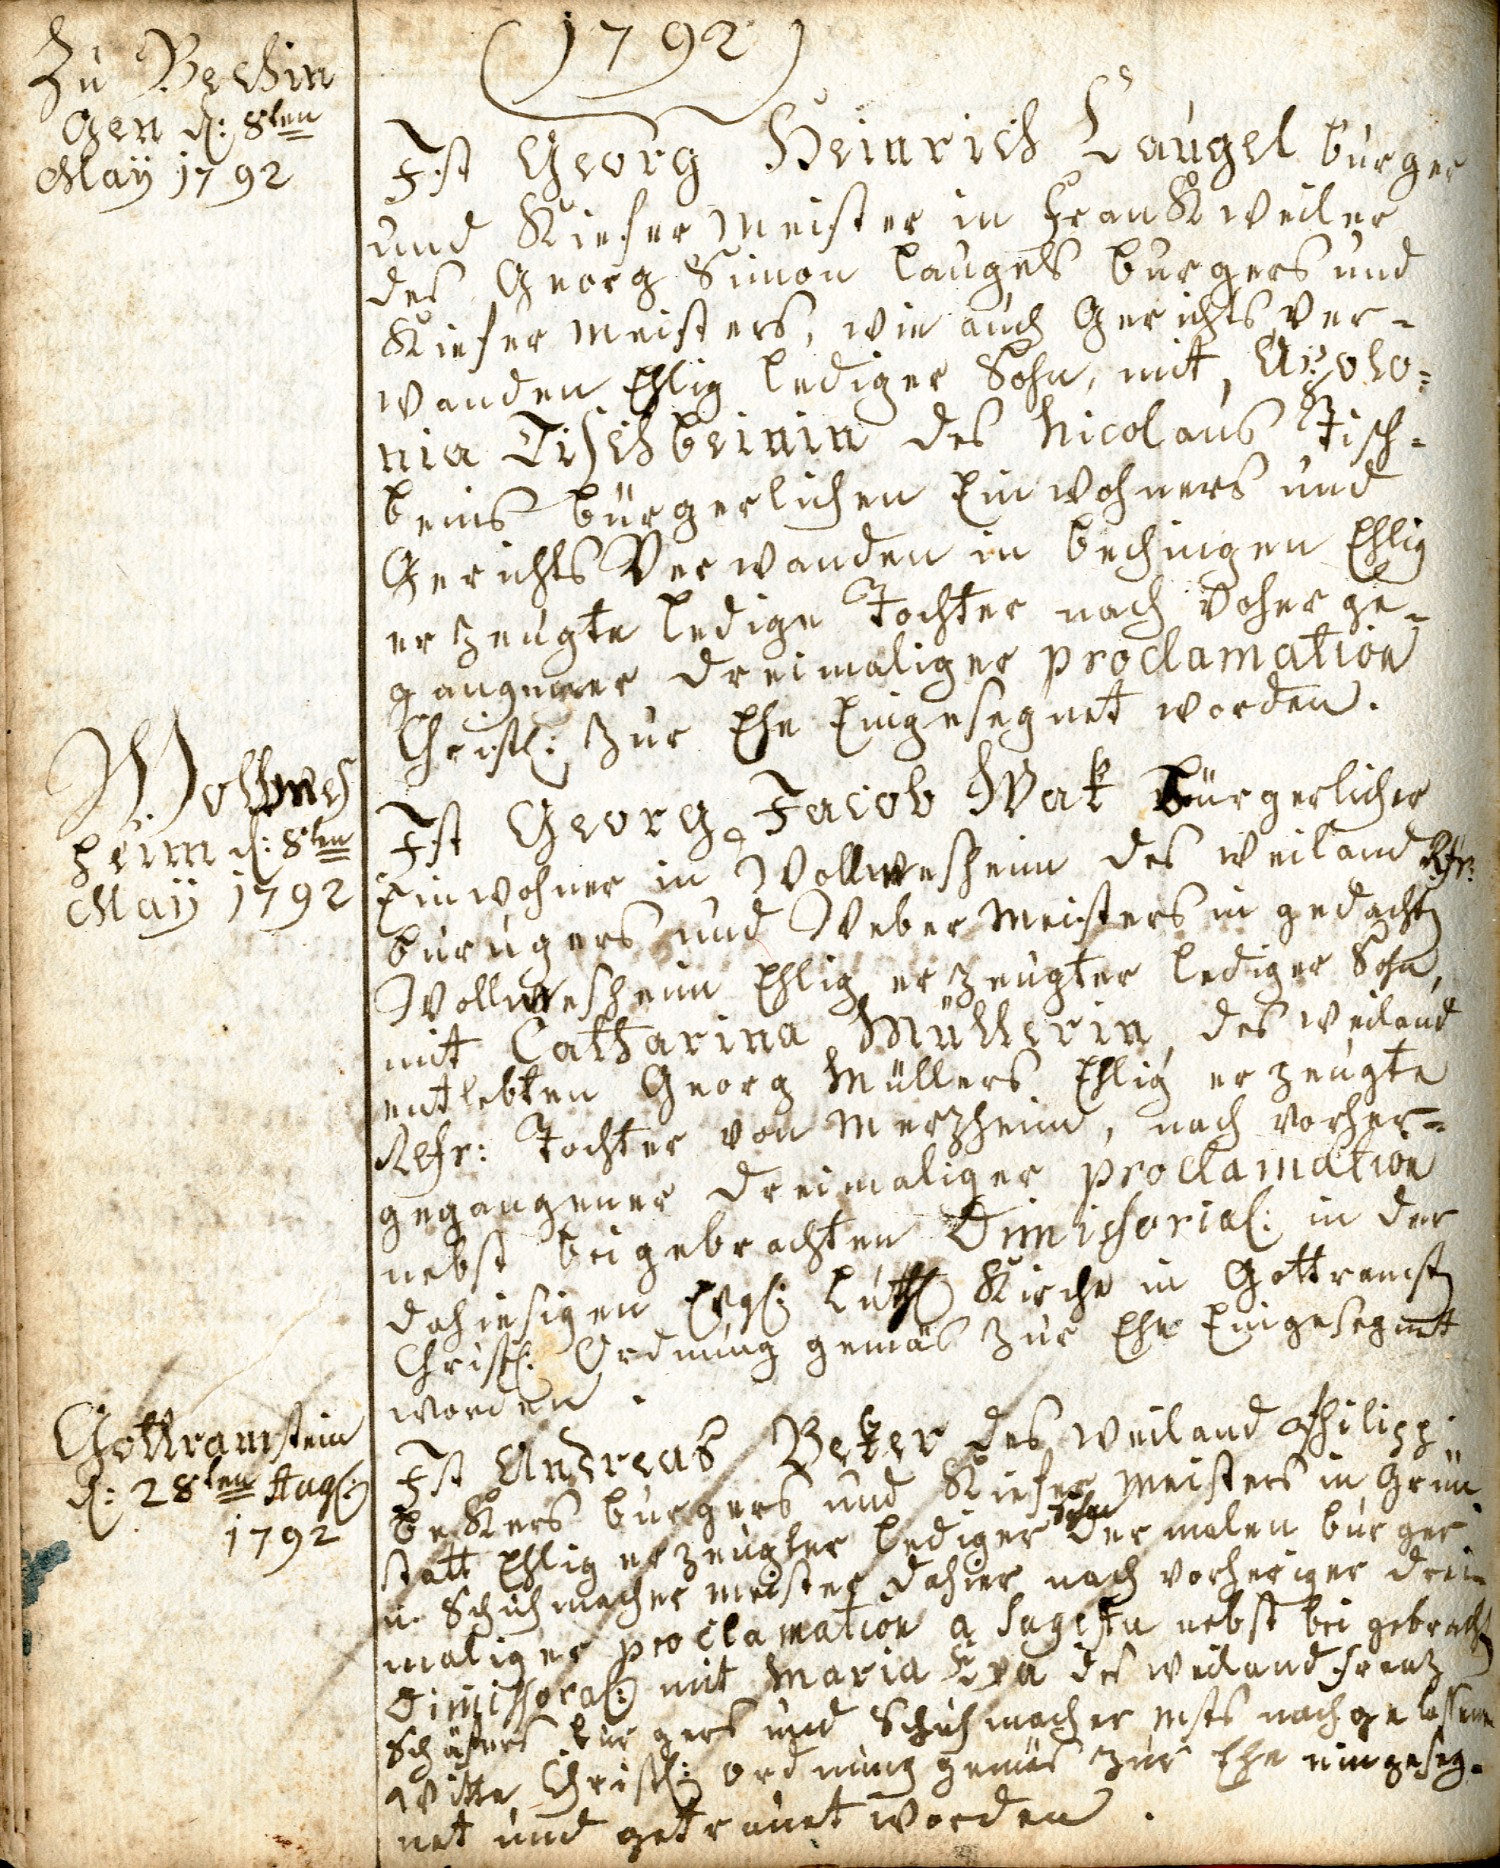 (1792)
Zu Bechin
gen d: 8ten
May 1792
Ist Georg Heinrich Laugel burger
und Kiefer Meister in Frankweiler
des Georg Simon Laugels burgers und
Kiefer Meisters, wie auch Gerichts Ver-
wanden Ehlig lediger Sohn, mit, Apolo-
nia Tischbeinin des Nicolaus Tisch-
beins bürgerlichen Einwohners und
Gerichts Verwanden in bechingen Ehlig
erzeugte ledige Tochter nach voherge-
gangener dreimaliger proclamation
Christl: zur Ehe Eingesegnet worden.
Wollmes
heim d: 8ten
May 1792
Ist Georg Jacob Wak bürgerlicher
Einwohner in Wollmesheim des weiland
burugers und Weber Meisters in gedacht
Wollmesheim Ehlig erzeugter lediger Sohn,
mit Catharina Müllerin, des weiland
entlebten Georg Müllers Ehlig erzeugte
Refr: Tochter von Merzheim, nach vorher-
gegangener dreimaliger proclamation
nebst beigebrachten Dimissorial: in der
dahiesigen Evgl: Luth Kirche in Gottramst
Christl: Ordnung gemäs zur Ehe Eingesegnet
worden.
Gottramstein
d: 28ten Aug:
1792
Ist Andreas Beker des weiland Philipp
bekers burgers und Kiefer Meisters in Grün
statt Ehlig erzeugter lediger Sohn der malen burger
u. Schuhmacher meister dahier nach vorheriger drei-
maliger proclamation nebst bei gebracht
Dimissoral: mit Maria Eva des weiland Frantz
Schäfers burgers und Schuhmacher msts nachgelassene
Witte Christl: ordnung gemäs zur Ehe eingeseg-
net und getrauet worden.